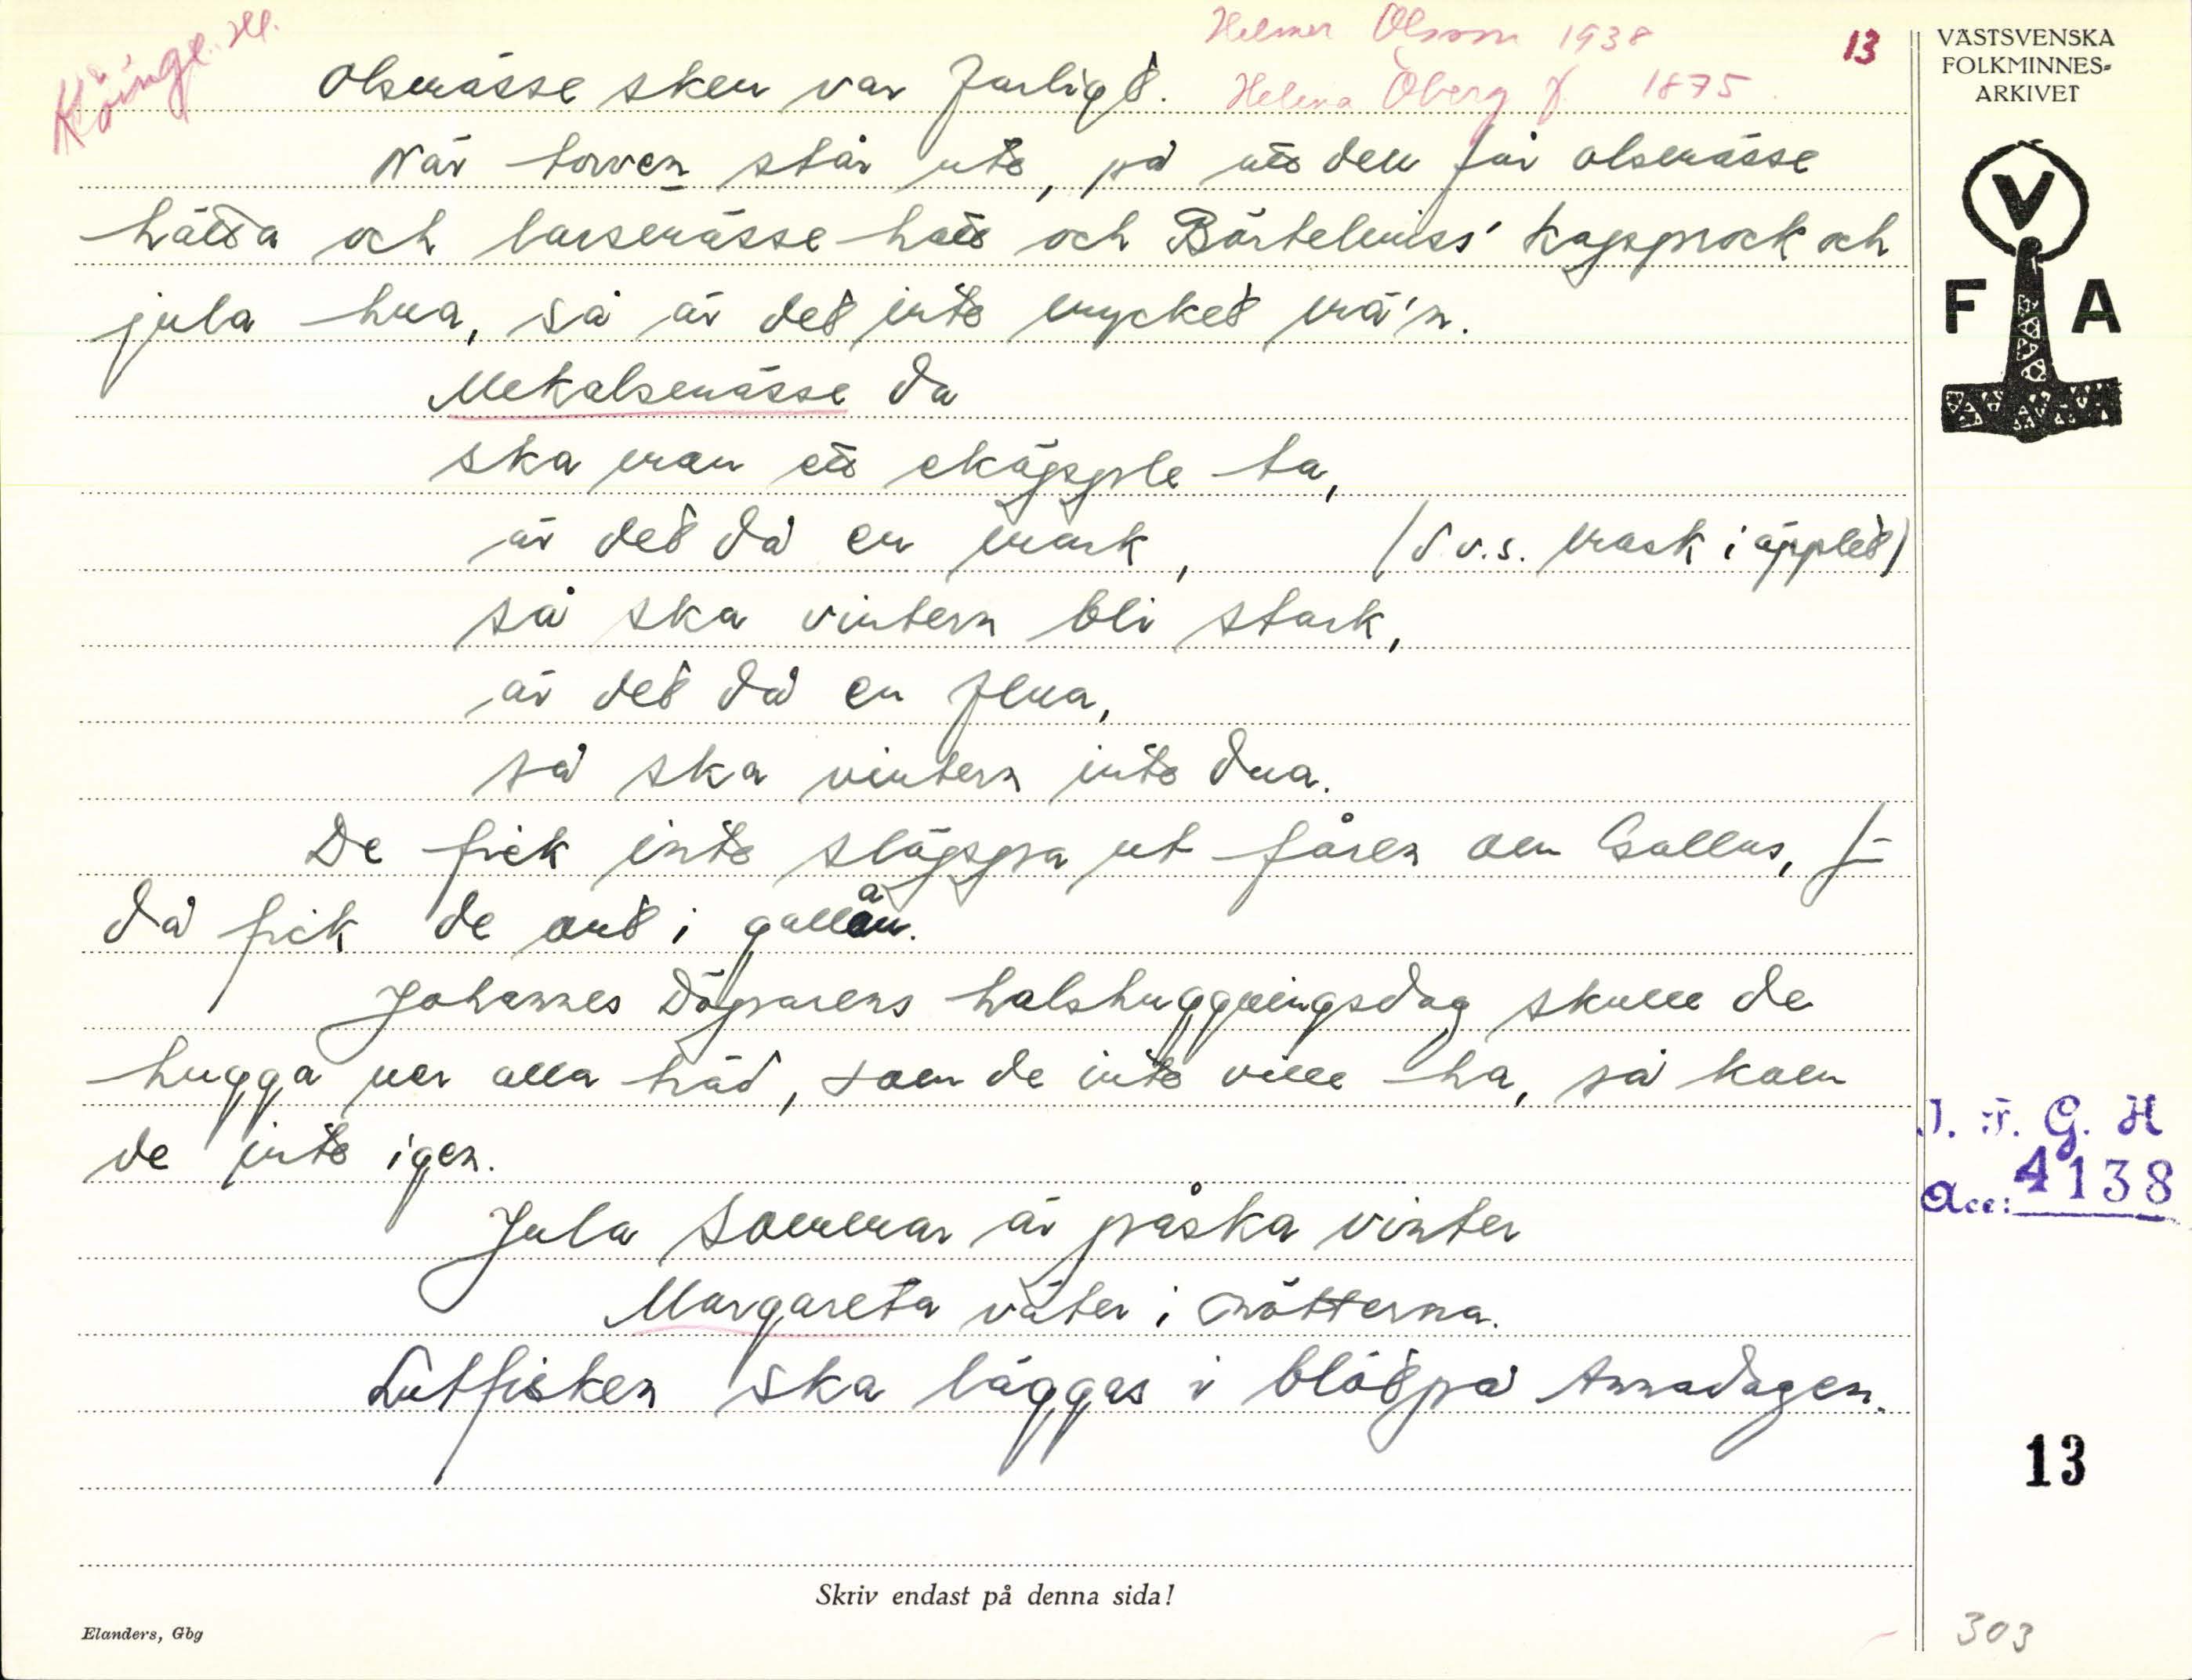 Köinge. Hl.
Helmer Olsson 1938
13
Helena Öberg f. 1875.
Olsmässe sken var farligt.
När torven står ute, på att den får olsmässe
hätta och larsmässe hatt och Bärtelmiss' kapprock och
jula hua, så är det inte mycket mä'n.
Mekalsmässe da
ska man ett ekäpple ta,
är det då en mark, (d v.s. mask i äpplet)
så ska vintern bli stark,
är det då en flua,
så ska vintern inte dua.
De fick inte släppa ut fåren om Gallus, f-
då fick de ont i gallan.
Johannes Döparens halshuggningsdag skulle de
hugga ner alla träd, som de inte ville ha, så kom
de inte igen.
Jula sommar är påska vinter
Margareta väter i nötterna.
Lutfisken ska läggas i blöt på Annadagen.
Skriv endast på denna sida!
Elanders, Gbg
VÄSTSVENSKA
FOLKMINNES-
ARKIVET
V
F A
I. F. G. H
Acc: 4138
13
303